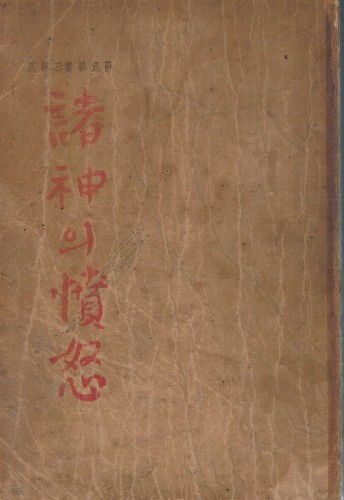 諸神의憤怒